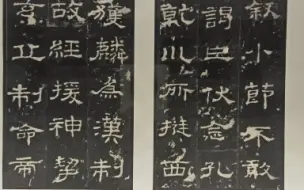 敘小節不敢
謁臣伏念孔
乾川所挺西
獲麟為漢制
故經援神挈
玄丘制命帝